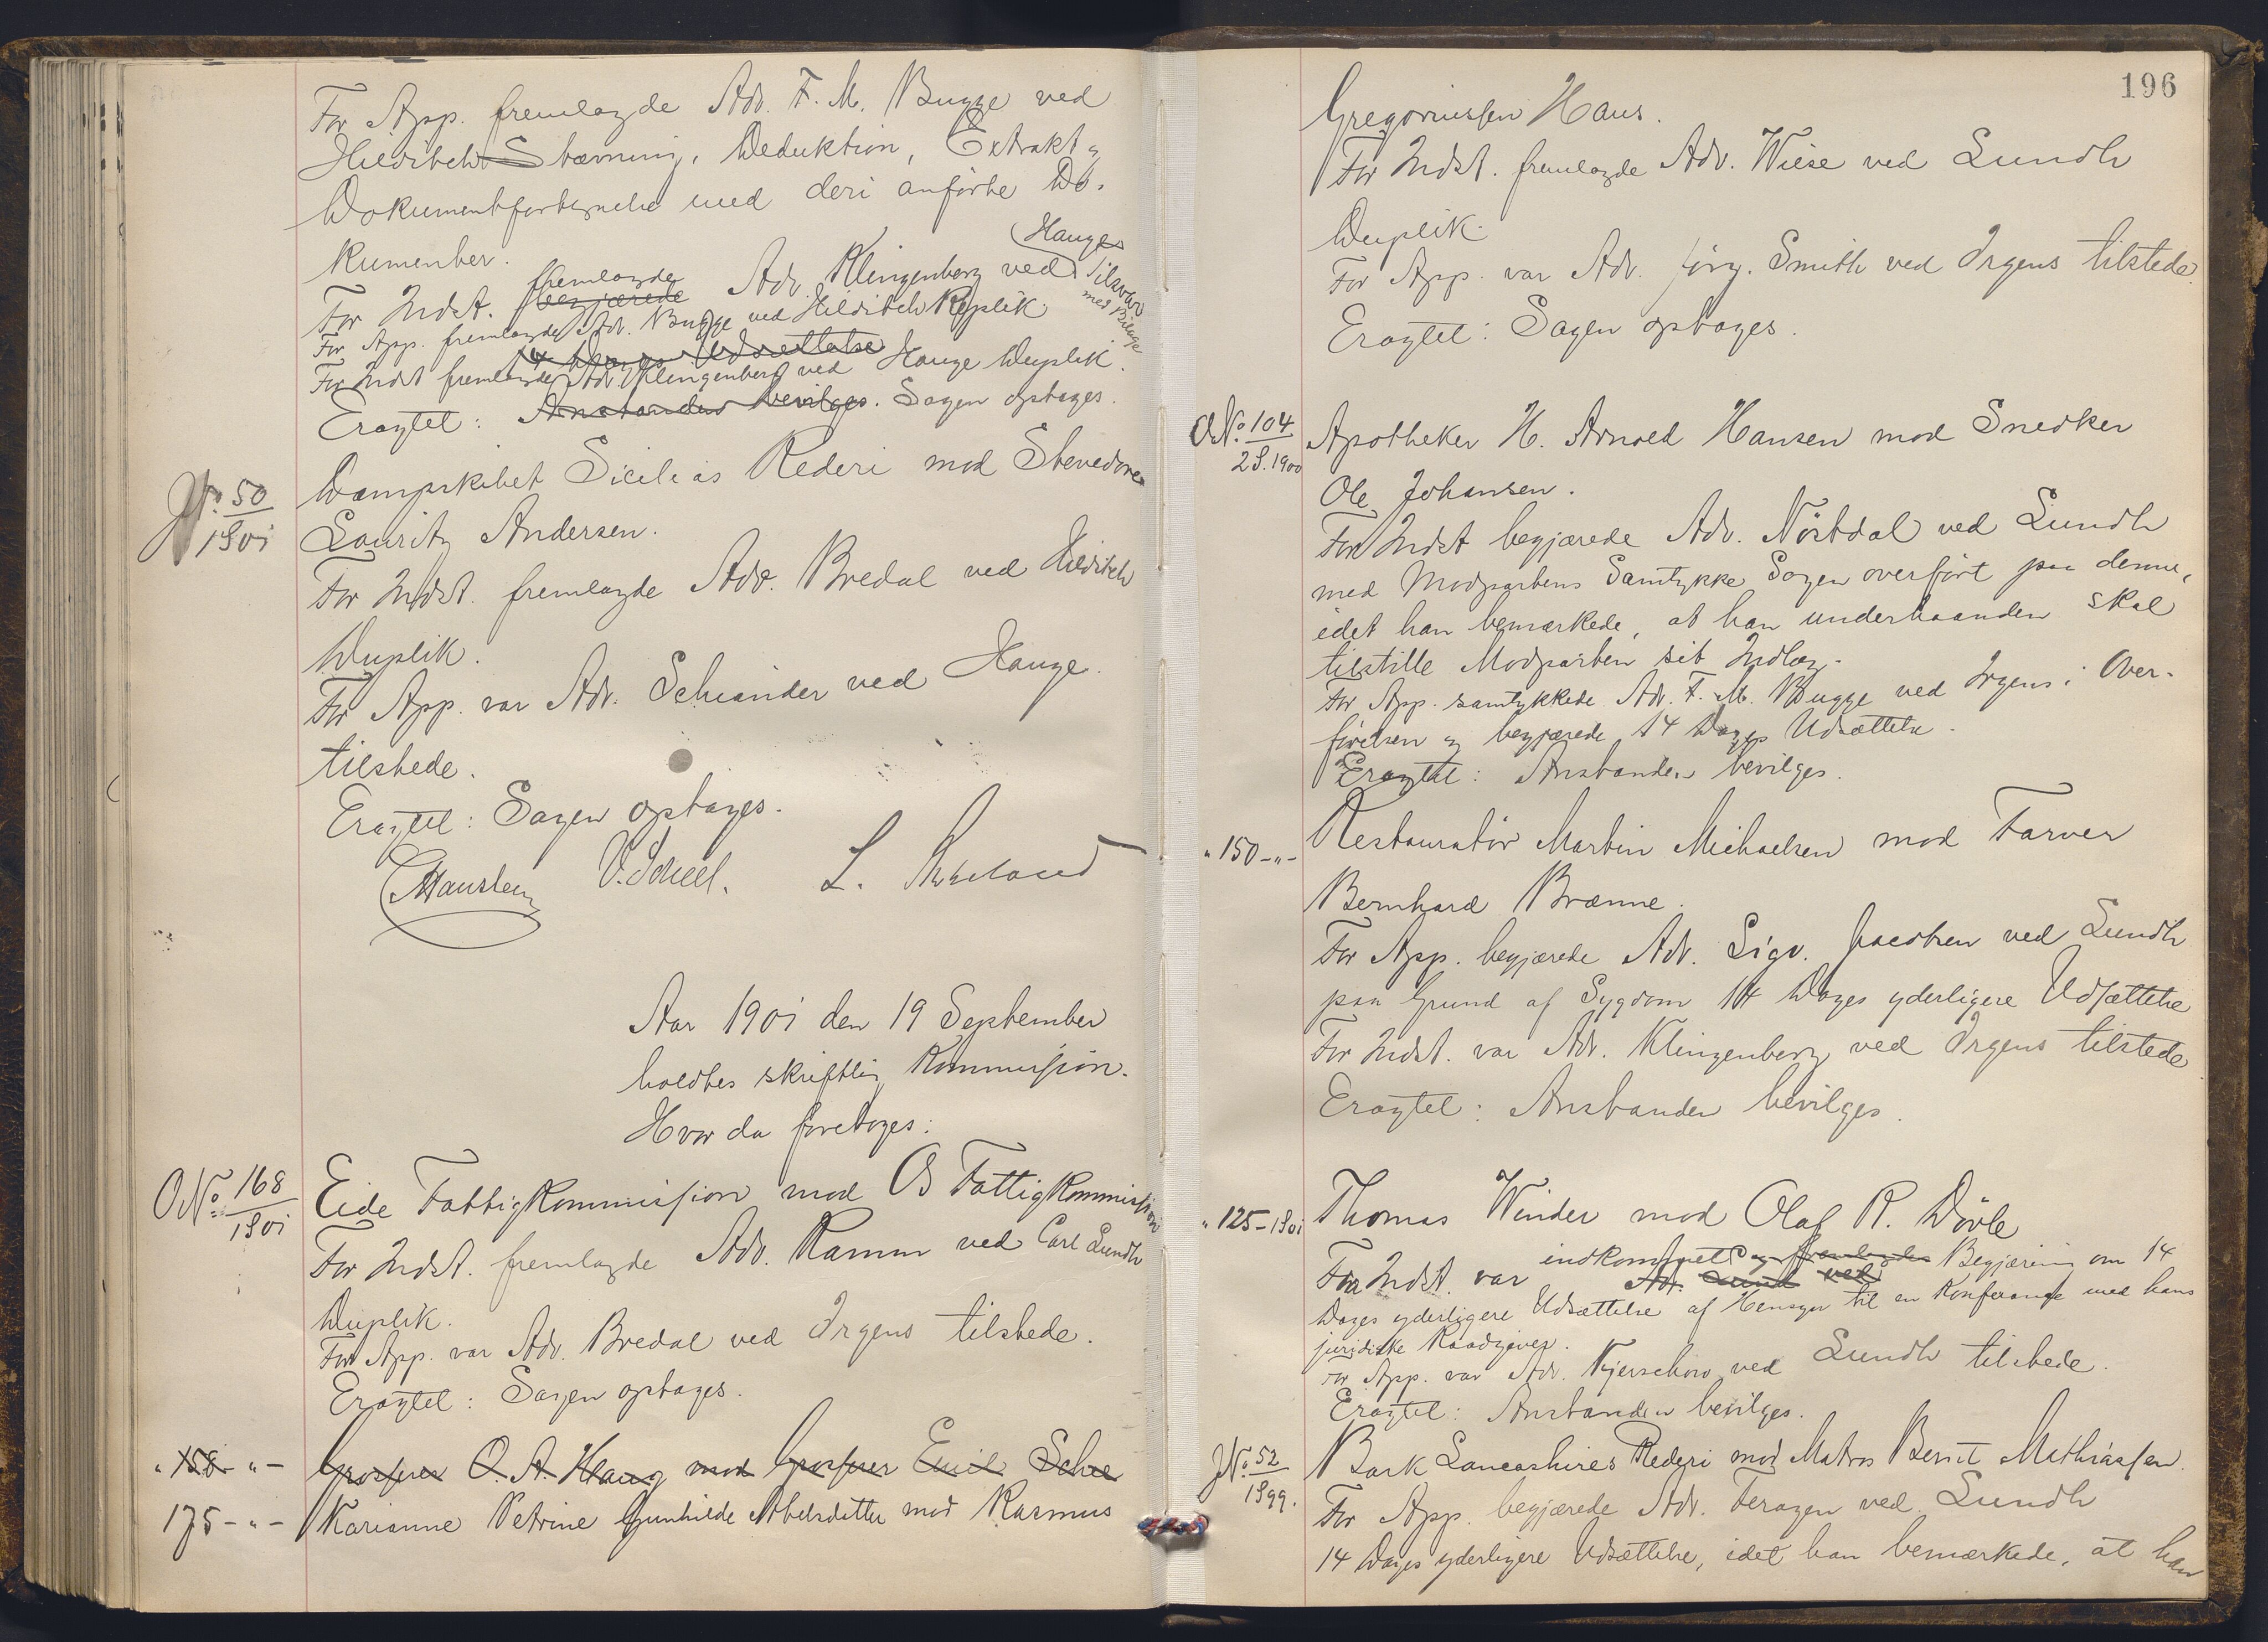 For App. fremlagde Adv. F. M. Bugge ved
Hilditch Stævning, Deduktion, Extrakt og
Dokumentfortegnelse med deri anførte Do-
kumenter.
Hauge
For Indst. fremlagde begjærede Adv. Klingenberg ved Tilsvar
med Bilage
For App. fremlagde Adv. Bugge ved Hilditch Replik
14 Dages Udsættelse
For Indst fremlagde Adv. Klingenberg ved Hauge Duplik.
Eragtet: Anstanden bevilges. Sagen optages.
No. 50
1901
Dampskibet Sicilias Rederi mod Stevedore
Lauritz Andersen.
For Indst. fremlagde Adv. Bredal ved Hilditch
Duplik.
For App. var Adv. Schiander ved Hauge
tilstede.
Eragtet: Sagen optages.
V. Scheel. L.
Aar 1901 den 19 September
holdtes skriftlig Kommission.
Hvor da foretoges:
O No. 168
1901
Eide Fattigkommission mod Os Fattigkommission
For Indst. fremlagde Adv. Ramm ved Carl Lundh
Duplik.
For App. var Adv. Bredal ved Irgens tilstede.
Eragtet: Sagen optages.
" 158 - " -
Grosserer O. A. Haug mod Grosserer Emil Schee
175 - " -
Karianne Petrine Gunhilde Abelsdatter mod Rasmus
196
Gregoriussen Haus.
For Indst. fremlagde Adv. Wiese ved Lundh
Duplik.
For App. var Adv. Jørg. Smith ved Irgens tilstede.
Eragtet: Sagen optages.
O No. 104
2S. 1900
Apotheker H. Arnold Hansen mod Snedker
Ole Johansen.
For Indst begjærede Adv. Nøstdal ved Lundh
med Modpartens Samtykke Sagen overført paa denne,
idet han bemærkede, at han underhaanden skal
tilstille Modparten sit Indlæg.
For App. samtykkede Adv. F. M. Bugge ved Irgens i Over-
førelsen og begjærede 14 Dages Udsættelse.
Eragtet: Anstanden bevilges.
" 150 - " -
Restauratør Martin Michaelsen mod Farver
Bernhard Brænne.
For App. begjærede Adv. Sigv. Jacobsen ved Lundh
paa Grund af Sygdom 14 Dages yderligere Udsættelse
For Indst. var Adv. Klingenberg ved Irgens tilstede
Eragtet: Anstanden bevilges.
" 125 - 1901
Thomas Winder mod Olaf R. Dövle
For Indst. var indkommet og fremlagdes Begjæring om 14
Adv. Lund ved
Dages yderligere Udsættelse af Hensyn til en Konferanse med hans
juridiske Raadgiver.
For App. var Adv. Kjerschow ved Lundh tilstede.
Eragtet: Anstanden bevilges.
No. 52
1899.
Bark Lancashires Rederi mod Matros Bernt Mathiassen.
For App. begjærede Adv. Feragen ved Lundh
14 Dages yderligere Udsættelse, idet han bemærkede, at han